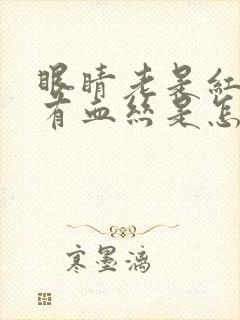 眼睛老是红
有血丝是怎
寒墨漓